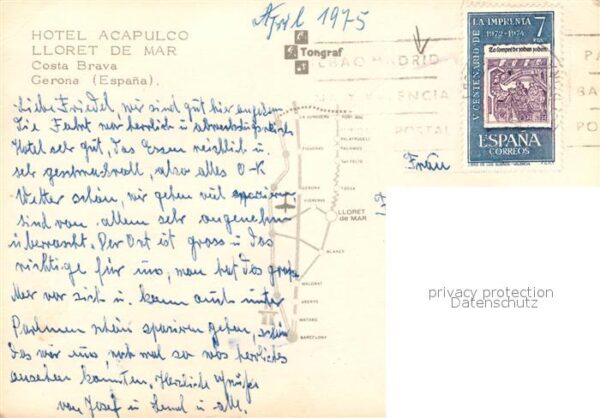 April 1975
HOTEL ACAPULCO
LLORET DE MAR
Costa Brava
Gerona (España).
Tongraf
BILBAO MADRID
VALENCIA
POSTAL
PA
BA
POS
V CENTENARIO DE LA IMPRENTA
1972-1974
7
PTAS
ESPAÑA
CORREOS
Liebe Friedel, wir sind gut hier angekommen.
Die Fahrt war herrlich u. abwechslungsreich
Hotel sehr gut, das Essen reichlich u.
sehr geschmackvoll, also alles O-K
Wetter schön, wir gehen viel spazieren
sind von allem sehr angenehm
überrascht. Der Ort ist gross u das
richtige für uns, man hat das große
Meer vor sich u. kann auch unter
Palmen schön spazieren gehen, schön
das wir uns noch mal so was herrliches
ansehen konnten. Herzliche Grüße
von Josef u u. alle.
Frau
LA JUNQUERA
PORT-BOU
FIGUERAS
PALAFRUGELL
PALAMOS
SAN FELIU
GERONA
TOSSA
VIDRERAS
LLORET
DE MAR
BLANES
MALGRAT
ARENYS
MATARO
BARCELONA
privacy protection
Datenschutz